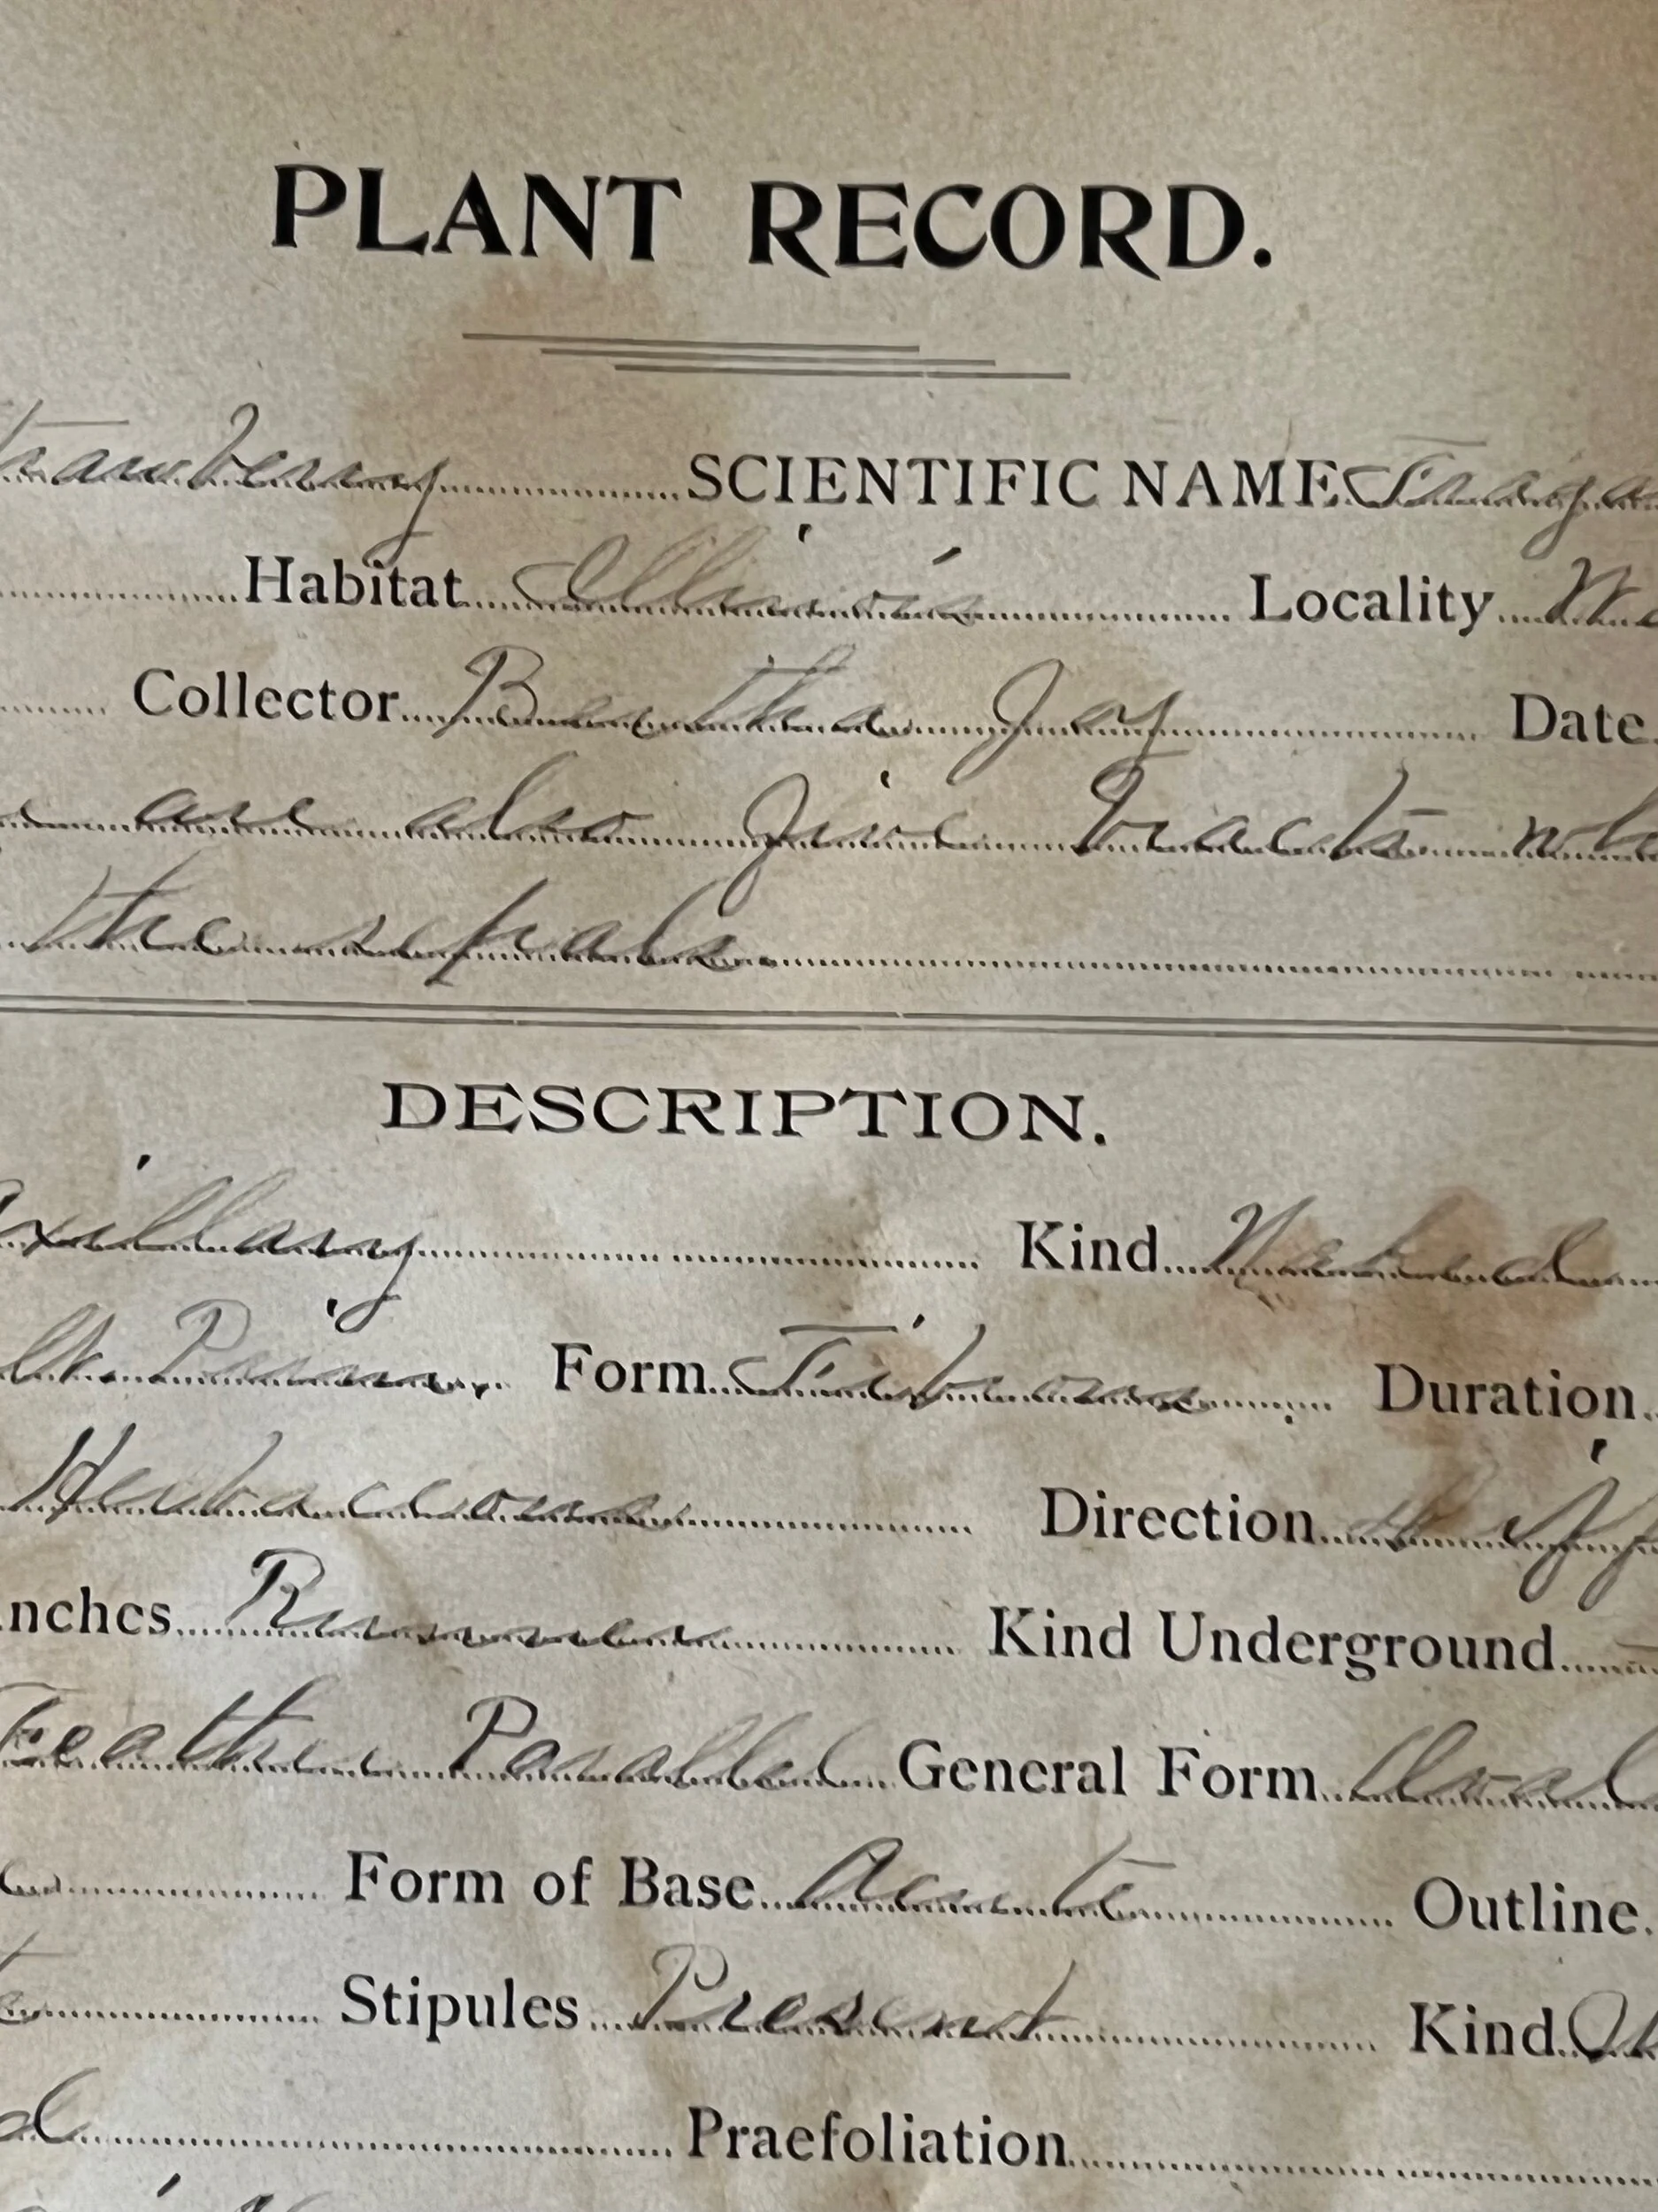 PLANT RECORD.
trawberry SCIENTIFIC NAME Fraga
Habitat Illinois Locality
Collector Bertha Joy Date
are also five bracts wh
the sepals.
DESCRIPTION.
Axillary Kind Naked
Prim. Form Fibrous Duration
Herbaceous Direction
nches Runner Kind Underground
Feather Parallel General Form Oval
Form of Base Acute Outline
Stipules Present Kind
Praefoliation